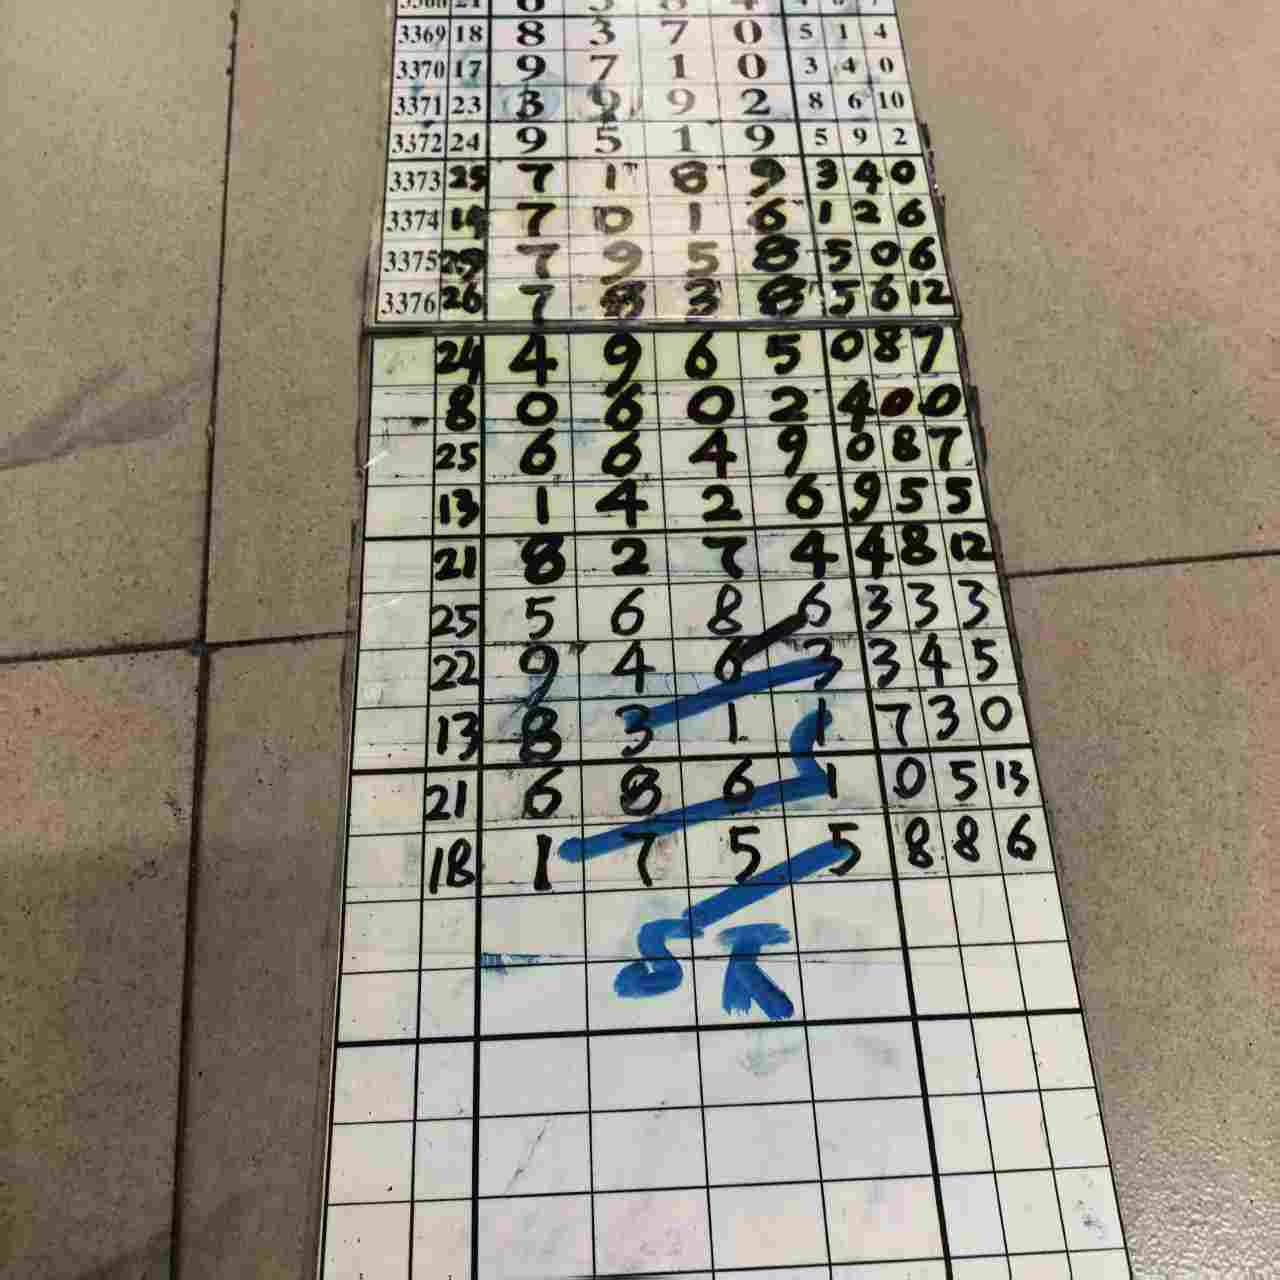 3369 18 8 3 7 0 5 1 4
3370 17 9 7 1 0 3 4 0
3371 23 3 9 9 2 8 6 10
3372 24 9 5 1 9 5 9 2
3373 25 7 1 8 9 3 4 0
3374 14 7 0 1 6 1 2 6
3375 29 7 9 5 8 5 0 6
3376 26 7 8 3 8 5 6 12
24 4 9 6 5 0 8 7
8 0 6 0 2 4 0 0
25 6 6 4 9 0 8 7
13 1 4 2 6 9 5 5
21 8 2 7 4 4 8 12
25 5 6 8 6 3 3 3
22 9 4 6 3 3 4 5
13 8 3 1 1 7 3 0
21 6 8 6 1 0 5 13
18 1 7 5 5 8 8 6